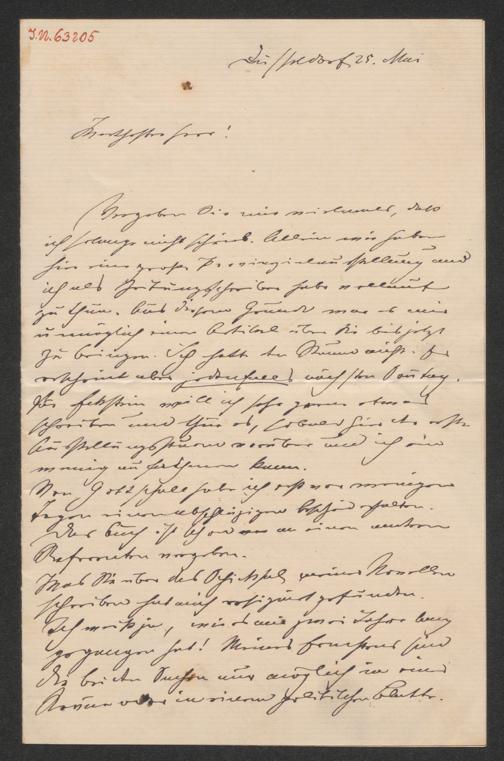 J.N. 63205
Düsseldorf 25. Mai
Werthester Herr!
Vergeben Sie mir vielmals, daß
ich so lange nicht schrieb. Allein wir haben
hier eine große Provinzialausstellung und
ich als Zeitungsschreiber habe vollauf
zu thun. Aus diesem Grunde war es mir
unmöglich einen Artikel über Sie bis jetzt
zu bringen. Ich hatte den Raum nicht. Er
erscheint aber jedenfalls nächsten Sonntag.
Für will ich sehr gerne etwas
schreiben und thue es, sobald hier der erste
Ausstellungssturm vorüber und ich ein
wenig aufathmen kann.
Von Gottschall habe ich erst vor wenigen
Tagen einen abschlägigen Bescheid erhalten.
Das Buch ist schon an einen anderen
Referenten vergeben.
Was Sie über das Schicksal meiner Novellen
schreiben hat mich resignirt gefunden.
Ich weiß ja, wie es mir zwei Jahre lang
gegangen hat! Meines sind
die beiden Sachen nur möglich in einer
Revue oder in einem politischen Blatte.